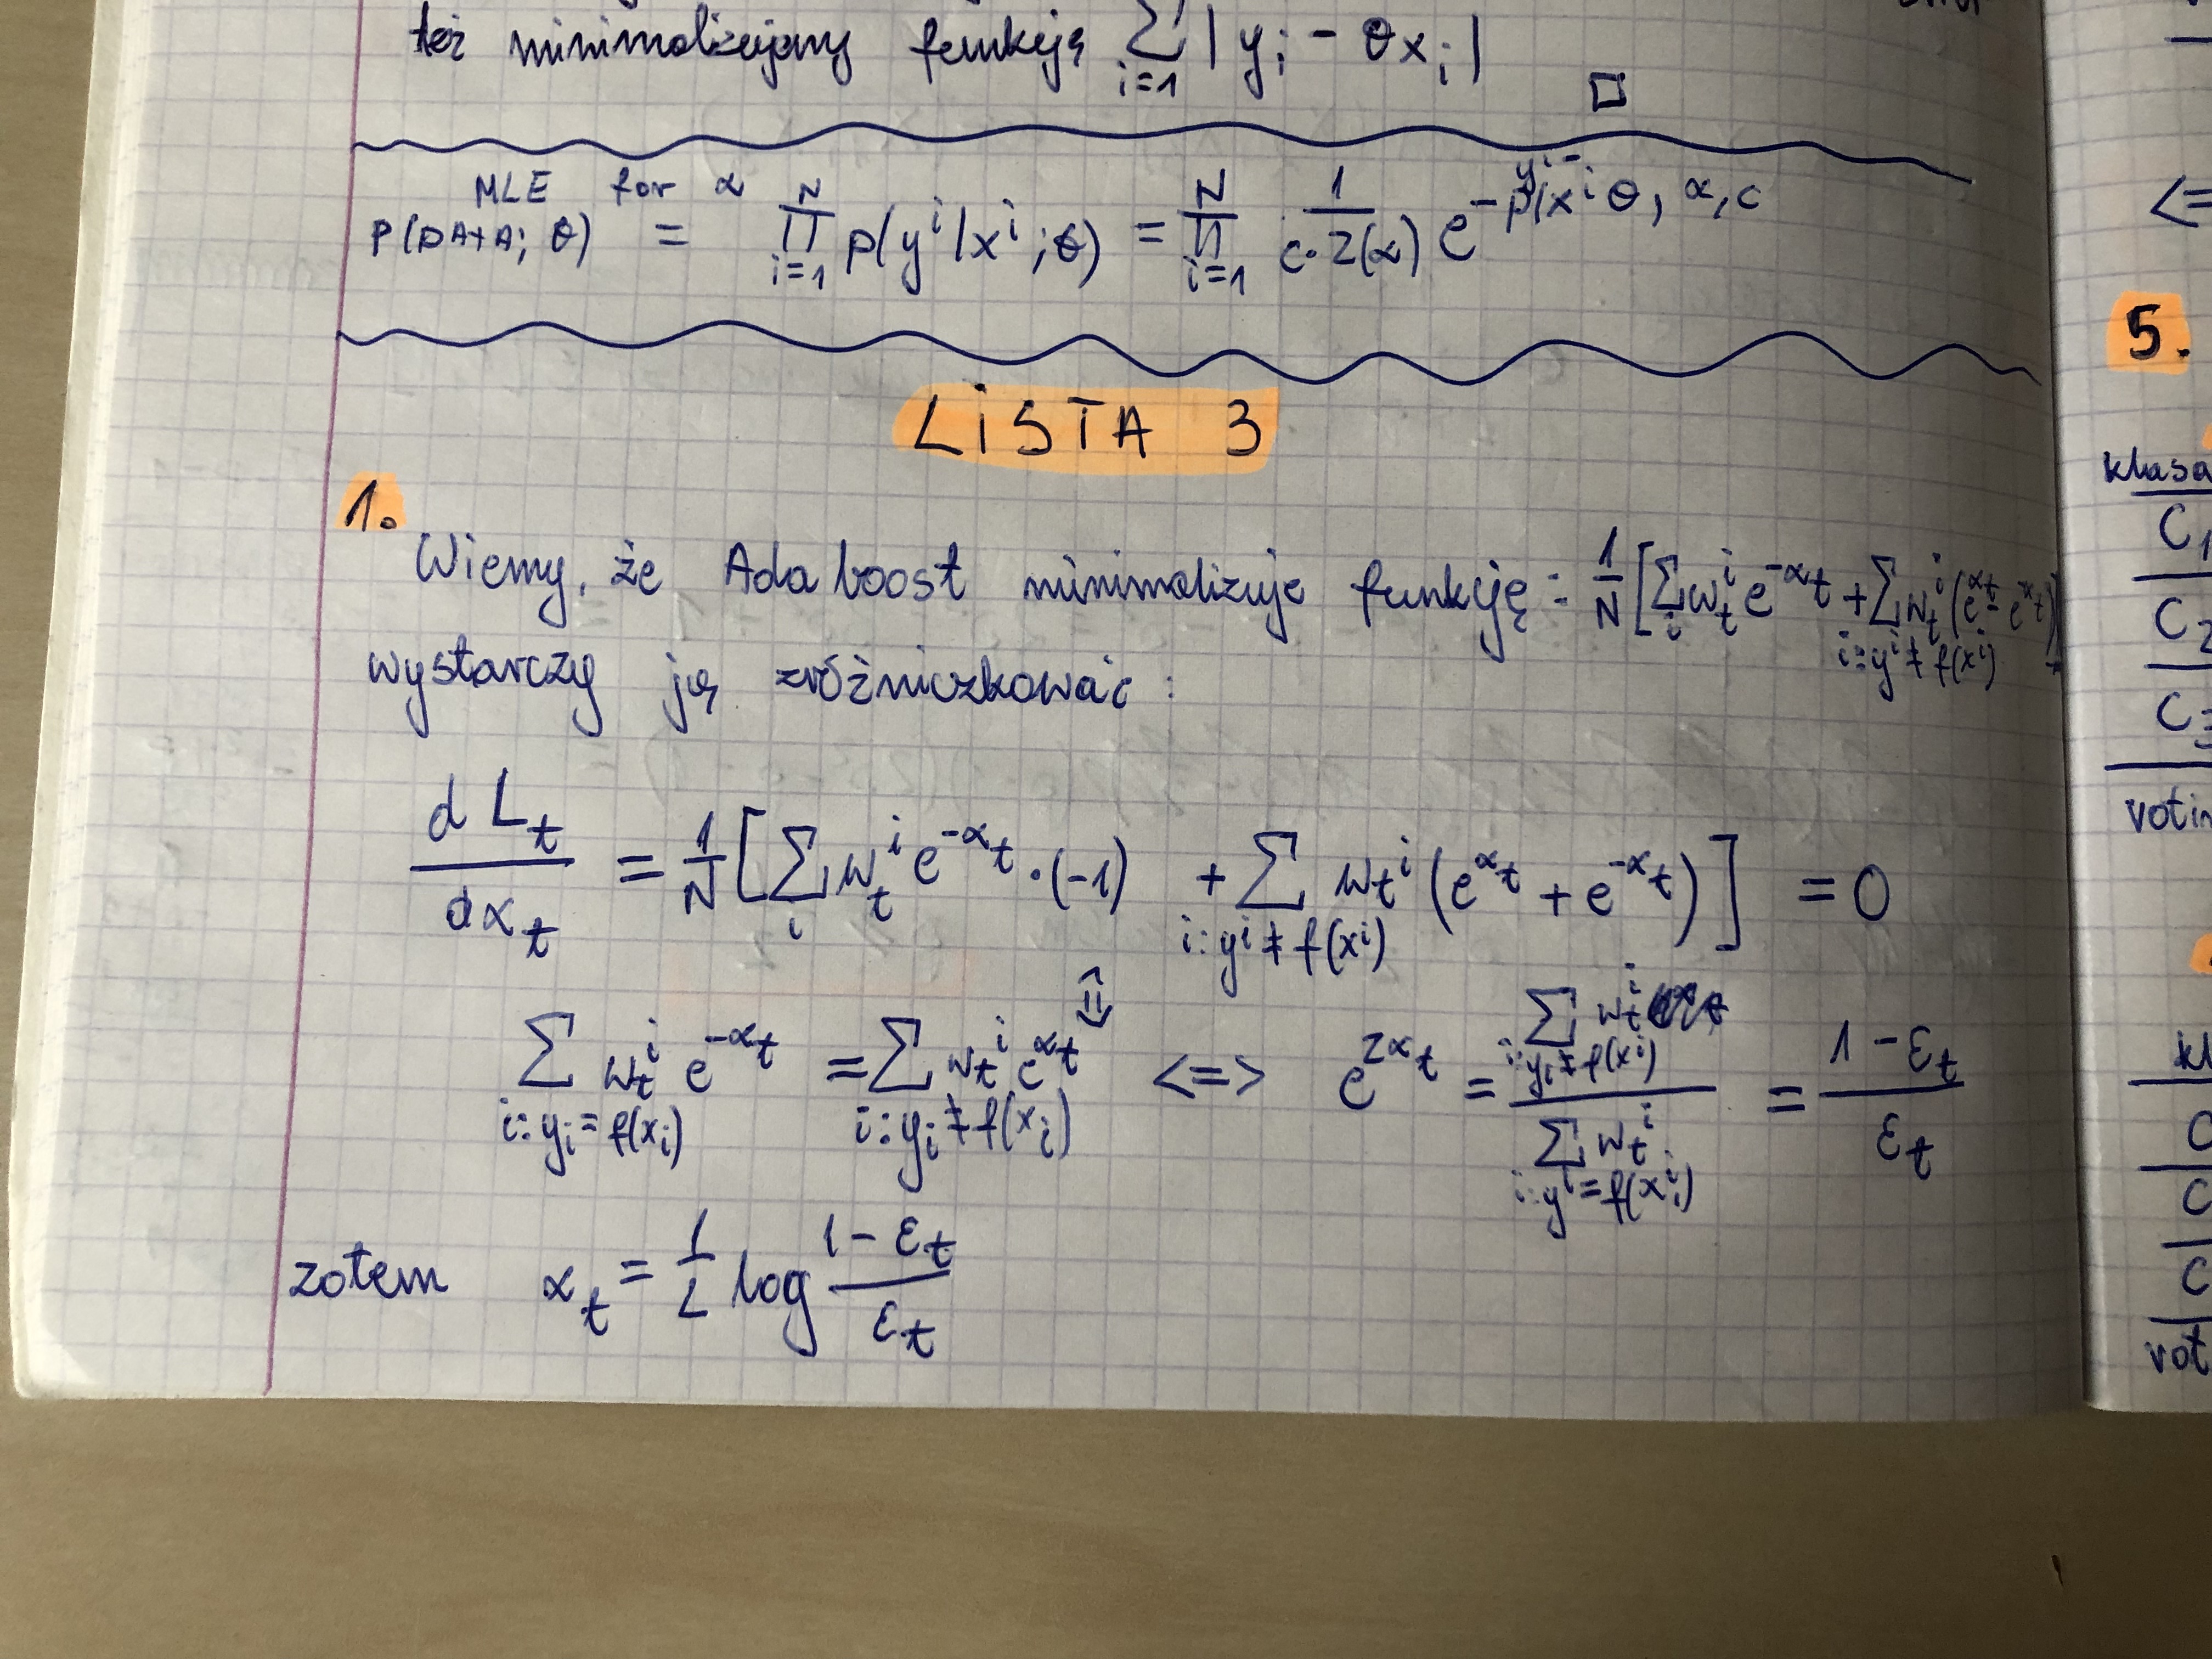 też minimalizujemy funkcję ∑_{i=1} | y_i - θx_i |
□
MLE for α
P(DATA; θ) = ∏_{i=1}^{N} p(y^i | x^i ; θ) = ∏_{i=1}^{N} \frac{1}{c·Z(α)} e^{-ρ(y^i - x^i θ, α, c}
LiSTA 3
1.
Wiemy, że Adaboost minimalizuje funkcję = \frac{1}{N} [ ∑_i w_t^i e^{-α_t} + ∑_{i: y^i ≠ f(x^i)} w_t^i (e^{α_t} - e^{-α_t}) ]
wystarczy ją zróżniczkować :
\frac{d L_t}{dα_t} = \frac{1}{N} [ ∑_i w_t^i e^{-α_t} · (-1) + ∑_{i: y^i ≠ f(x^i)} w_t^i (e^{α_t} + e^{-α_t}) ] = 0
⇕
∑_{i: y_i = f(x_i)} w_t^i e^{-α_t} = ∑_{i: y_i ≠ f(x_i)} w_t^i e^{α_t} <=> e^{2α_t} = \frac{∑_{i: y_i ≠ f(x^i)} w_t^i}{∑_{i: y^i = f(x^i)} w_t^i} = \frac{1 - ε_t}{ε_t}
zatem α_t = \frac{1}{2} log \frac{1 - ε_t}{ε_t}
<=
5.
klasa
C_1
C_2
C_3
votin
kl
C
C
C
vot